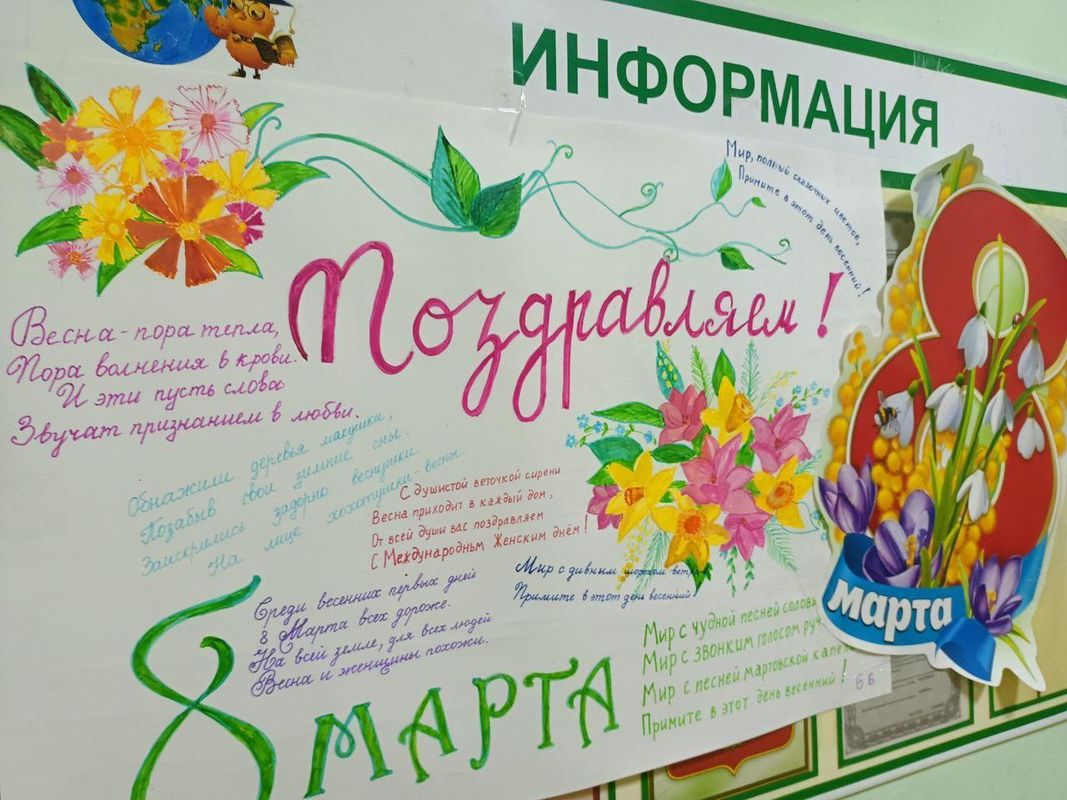 ИНФОРМАЦИЯ
Мир, полный сказочных цветов,
Примите в этот день весенний!
Поздравляем!
Весна - пора тепла,
Пора волнения в крови.
И эти пусть слова
Звучат признанием в любви.
Обнажили деревья макушки,
Позабыв свои зимние сны.
Заискрились задорно веснушки
На лице хохотушки - весны
С душистой веточкой сирени
Весна приходит в каждый дом,
От всей души вас поздравляем
С Международным Женским днём!
Мир с дивным шорохом ветра
Примите в этот день весенний!
Среди весенних первых дней
8 Марта всех дороже.
На всей земле, для всех людей
Весна и женщины похожи.
Мир с чудной песней соловь
Мир с звонким голосом руч
Мир с песней мартовской капел
Примите в этот день весенний!
6 б
8 МАРТА
8
марта